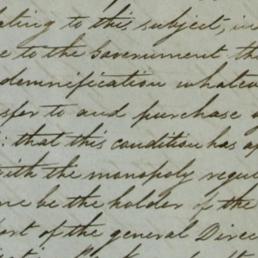 ating to this subject, in
e to the Government, th
demnification whatev
sfer to and purchase o
: that this condition has ap
with the monopoly regu
one be the holder of the
ort of the general Direc